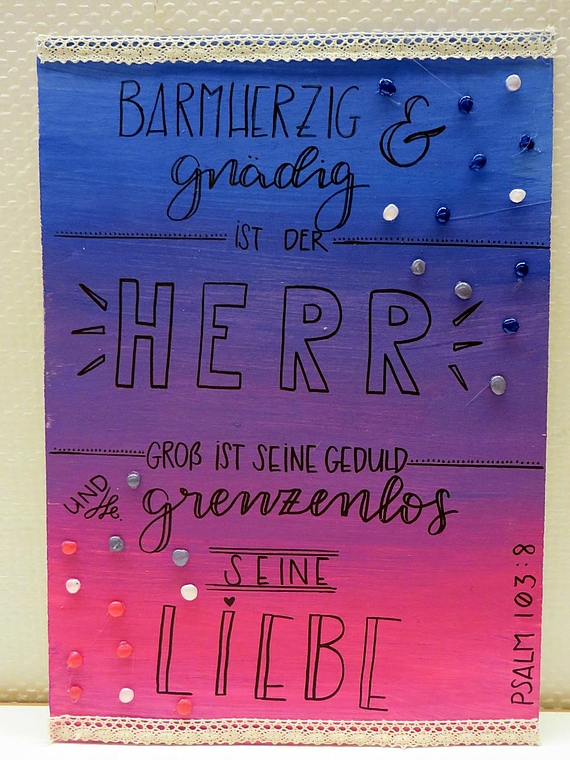 BARMHERZIG &
gnädig
IST DER
HERR
GROß IST SEINE GEDULD
UND
grenzenlos
SEINE
LIEBE
PSALM 103:8